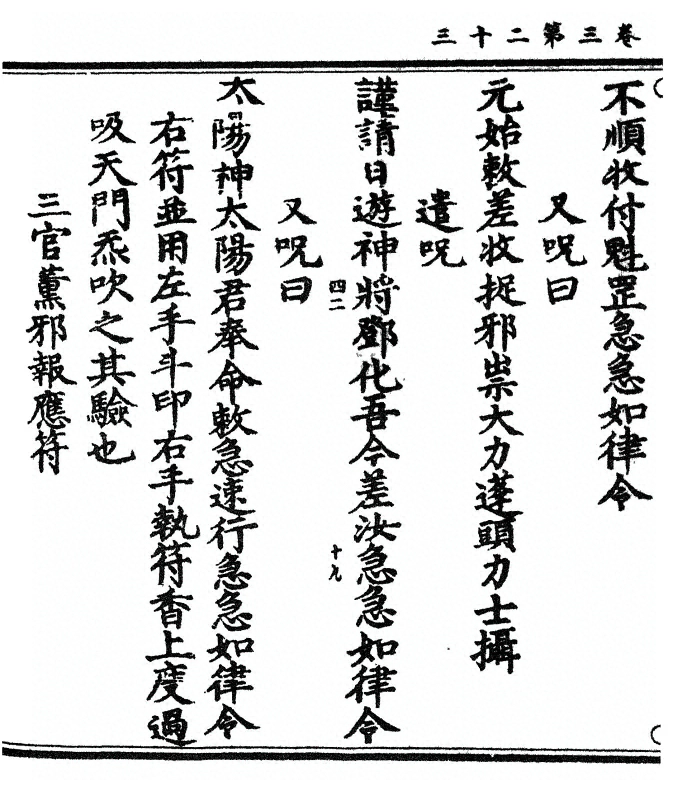 卷三第二十三
不順收付魁罡急急如律令
又呪曰
元始敕差收捉邪祟大力蓬頭力士攝
遣呪
謹請日遊神將鄧化吾今差汝急急如律令
四二
十九
又呪曰
太陽神太陽君奉命敕急速行急急如律令
右符並用左手斗印右手執符香上度過
吸天門炁吹之其驗也
三官薰邪報應符